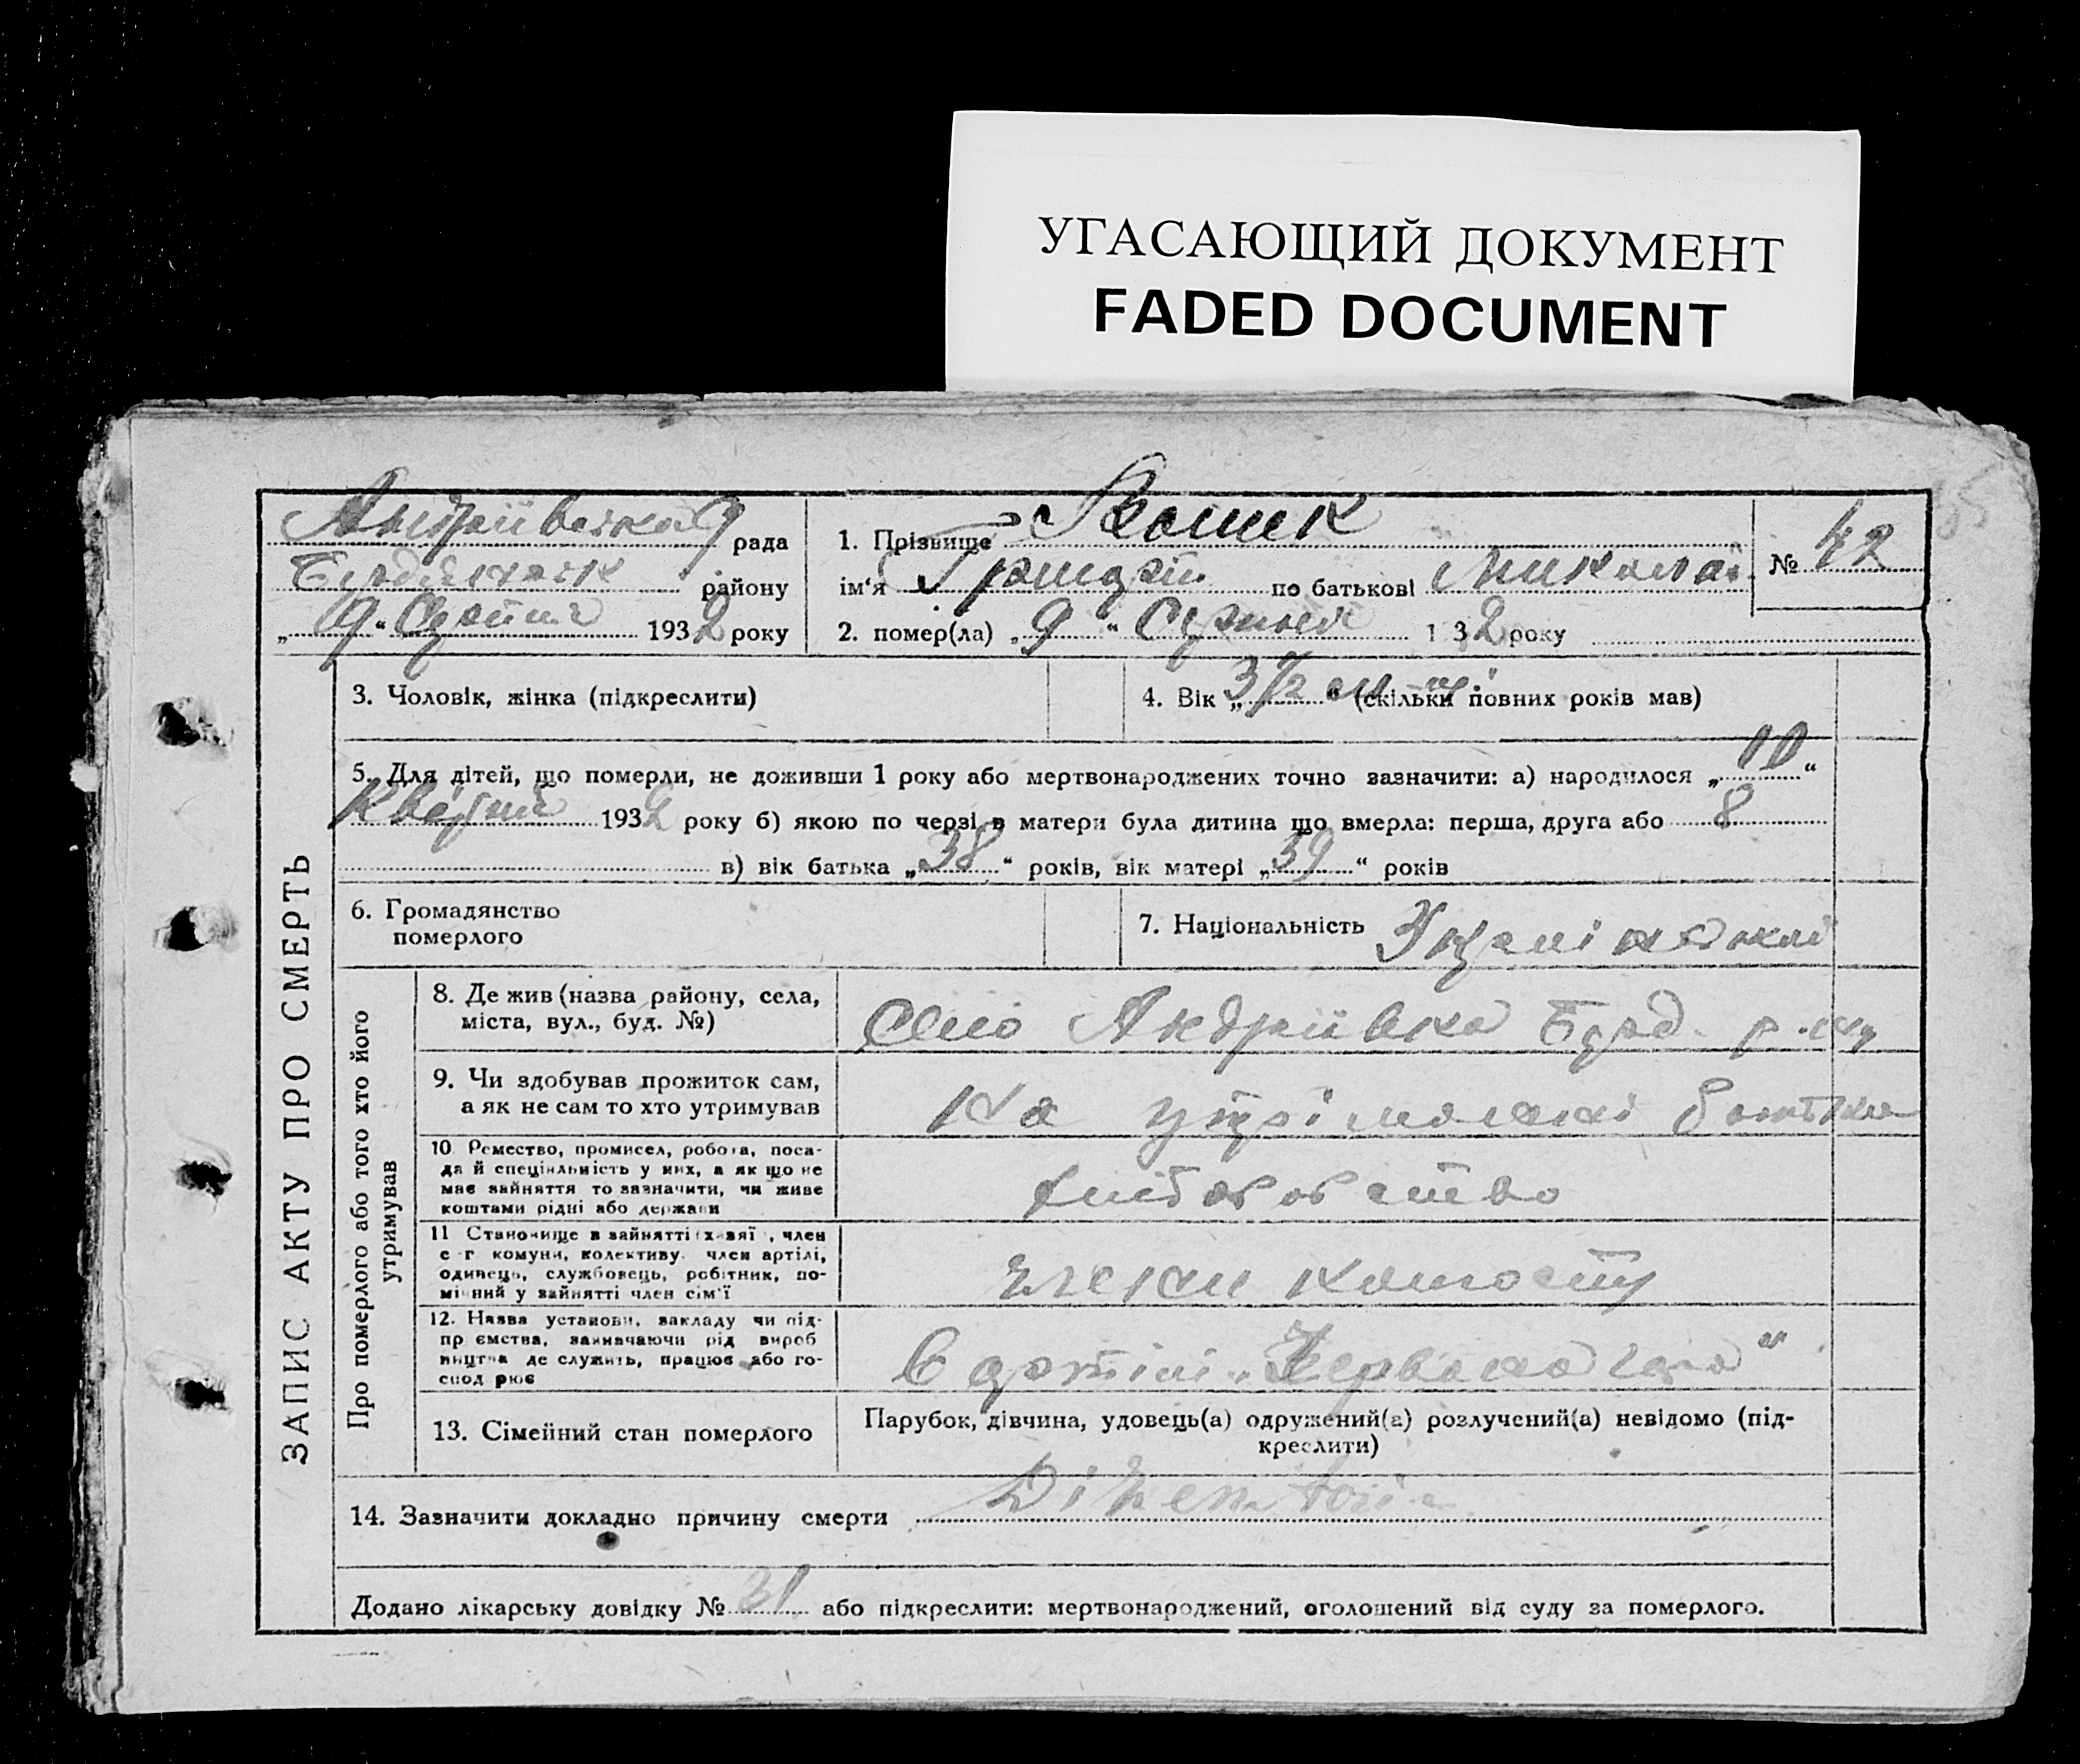 УГАСАЮЩИЙ ДОКУМЕНТ
FADED DOCUMENT
Андріївська рада
району
1932 року
1. Прізвище
ім'я по батькові Микола
2. помер(ла) „ 9 “ Серпня 1 32 року
№ 42
ЗАПИС АКТУ ПРО СМЕРТЬ
3. Чоловік, жінка (підкреслити)
4. Вік „ 3 1/2 “ (скільки повних років мав)
5. Для дітей, що померли, не доживши 1 року або мертвонароджених точно зазначити: а) народилося „ 10 “
Квітня 1932 року б) якою по черзі в матери була дитина що вмерла: перша, друга або 8
в) вік батька „ 38 “ років, вік матері „ 39 “ років
6. Громадянство
померлого
7. Національність
Про померлого або того хто його
утримував
8. Де жив (назва району, села,
міста, вул., буд. №)
село Андріівка Берд. р-ну
9. Чи здобував прожиток сам,
а як не сам то хто утримував
На утріманні батька
10 Ремество, промисел, робота, поса-
да й спеціяльність у них, а як що не
має зайняття то зазначити, чи живе
коштами рідні або держави
хліборобство
11 Становище в зайнятті (хазяї , член
с г комуни, колективу. член артілі,
одинець, службовець, робітник, по-
мічний у зайнятті член сім'ї
член колгоспу
12. Назва установи, закладу чи під-
пр ємства, зазначаючи рід вироб
ництва де служить, працює або го-
спод рює
В артілі „Червона “
13. Сімейний стан померлого
Парубок, дівчина, удовець(а) одружений(а) розлучений(а) невідомо (під-
креслити)
14. Зазначити докладно причину смерти
Додано лікарську довідку № 31 або підкреслити: мертвонароджений, оголошений від суду за померлого.